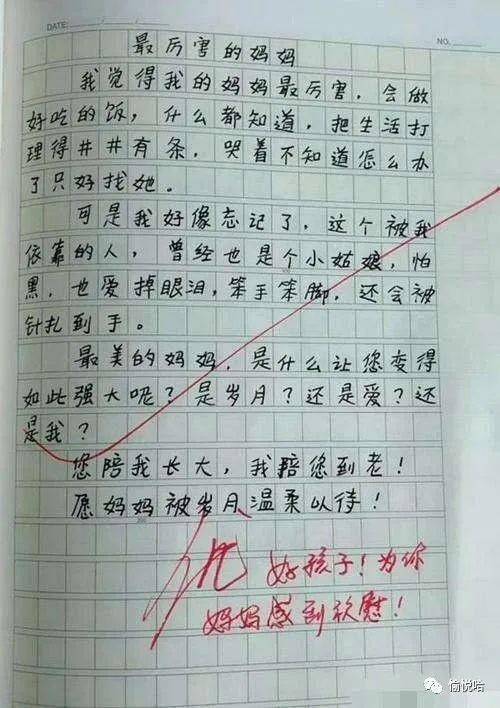 DATE:
NO.
最厉害的妈妈
我觉得我的妈妈最厉害，会做
好吃的饭，什么都知道，把生活打
理得井井有条，哭着不知道怎么办
了只好找她。
可是我好像忘记了，这个被我
依靠的人，曾经也是个小姑娘，怕
黑，也爱掉眼泪，笨手笨脚，还会被
针扎到手。
最美的妈妈，是什么让您变得
如此强大呢？是岁月？还是爱？还
是我？
您陪我长大，我陪您到老！
愿妈妈被岁月温柔以待！
优
好孩子！为你
妈妈感到欣慰！
愉悦哈